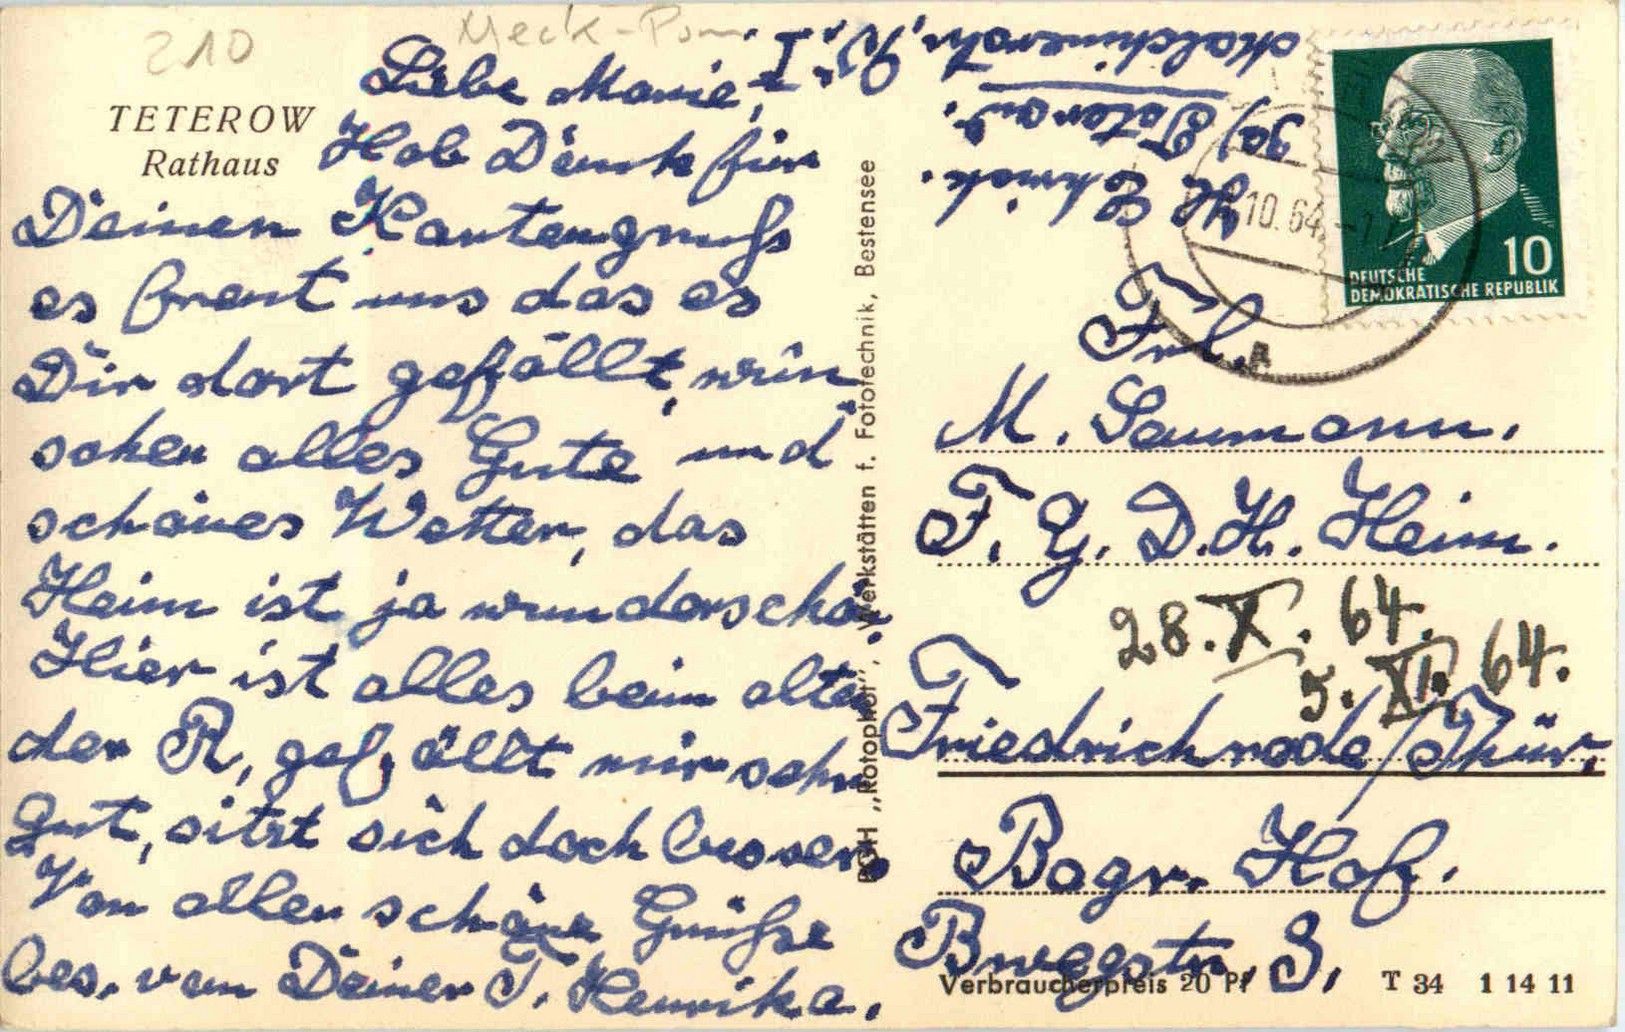 210
Meck-Pom
TETEROW
Rathaus
Liebe Marie,
Hab Dank für
Deinen Kartengruß
es freut uns das es
Dir dort gefällt, wün
schen alles Gute und
schönes Wetter, das
Heim ist ja wunderschön.
Hier ist alles beim alten
der R, gefällt mir sehr
gut, sitzt sich doch besser
Von allen schöne Grüße
bes. von Deiner T. Henrika.
PGH „Rotophot", Werkstätten f. Fototechnik, Bestensee
Teterow.
Malchinerstr.
10.64
10
DEUTSCHE
DEMOKRATISCHE REPUBLIK
Frl.
M. Saumann.
F. G. D. H. Heim.
28. X. 64.
5. XI. 64.
Friedrichroda/Thür.
Bayr. Hof.
Verbraucherpreis 20 Pf
T 34 1 14 11